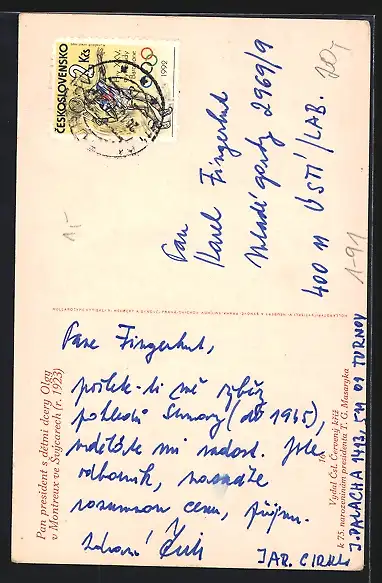 ČESKOSLOVENSKO
2 Kčs
1992
70,-
11,-
1-91
Pan
Karel Fingerhut
Mladé gardy 2969/9
400 11 ÚSTÍ/LAB.
Pane Fingerhut,
pošlete-li mě výběr
pohledů (do 1945),
uděláte mi radost. Jste
odborník, nasadíte
rozumnou cenu, přijmu.
Zdraví
JAR.
J. PALACHA 1413, 511 01 TURNOV
Pan president s dětmi dcery Olgy
v Montreux ve Švýcarech (r. 1923)
Vydal Čsl. Červený kříž
k 75. narozeninám presidenta T. G. Masaryka